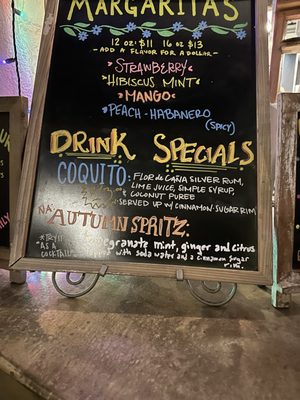 MARGARITAS
12 oz $11 16 oz $13
- ADD A FLAVOR FOR A DOLLAR -
STRAWBERRY
HIBISCUS MINT
MANGO
PEACH-HABANERO
(SPICY)
DRINK SPECIALS
COQUITO: FLOR de CAÑA SILVER RUM,
LIME JUICE, SIMPLE SYRUP,
COCONUT PUREE
-SERVED UP W/ CINNAMON·SUGAR RIM
NA AUTUMN SPRITZ:
*TRY IT pomegranate mint, ginger and citrus
"AS A with soda water and a cinnamon sugar
COCKTAIL" rim.